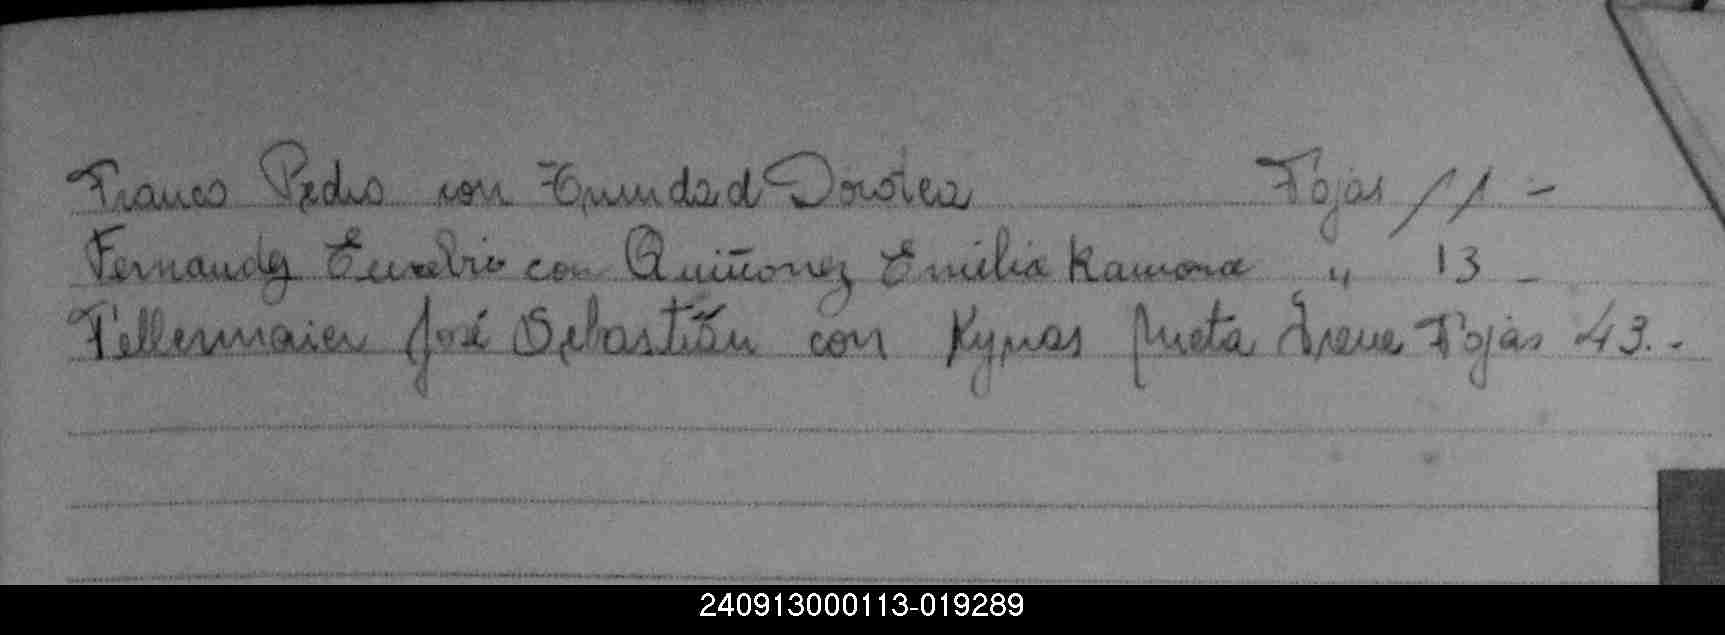 Franco Pedro con Trinidad Dorotea Fojas 11 -
Fernandez Eusebio con Quiñonez Emilia Ramona " 13 -
Fellermaier José Sebastián con Kynas Irene Fojas 43.-
240913000113-019289